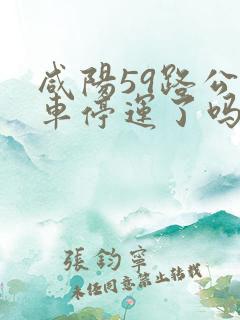 咸陽59路公
車停運了吗
張鈞寧
未经同意禁止转载